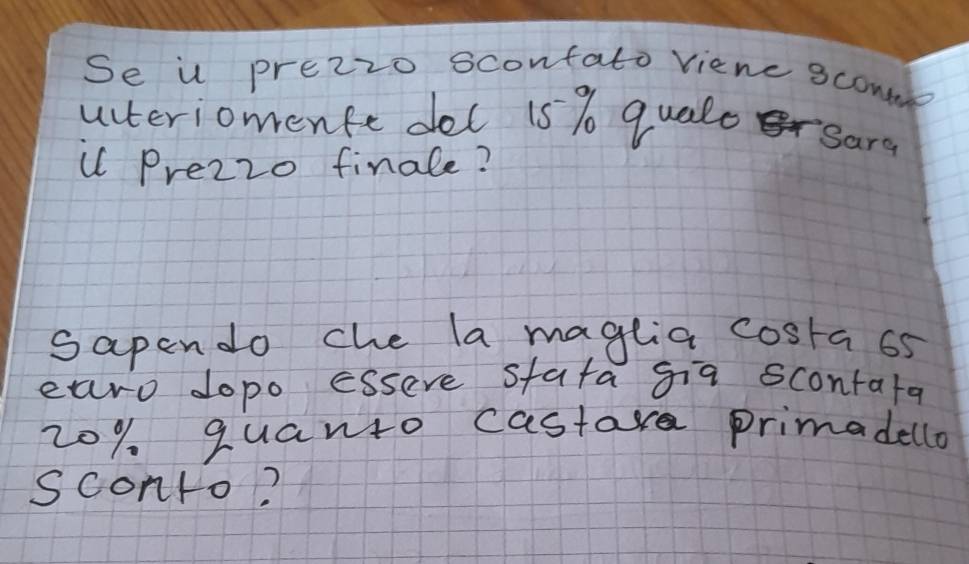 Se il prezzo scontato viene sconta
ulteriomente del 15% quale sara
il Prezzo finale?
Sapendo che la maglia costa 65
euro dopo essere stata gia scontata
20% quanto costava prima dello
sconto?